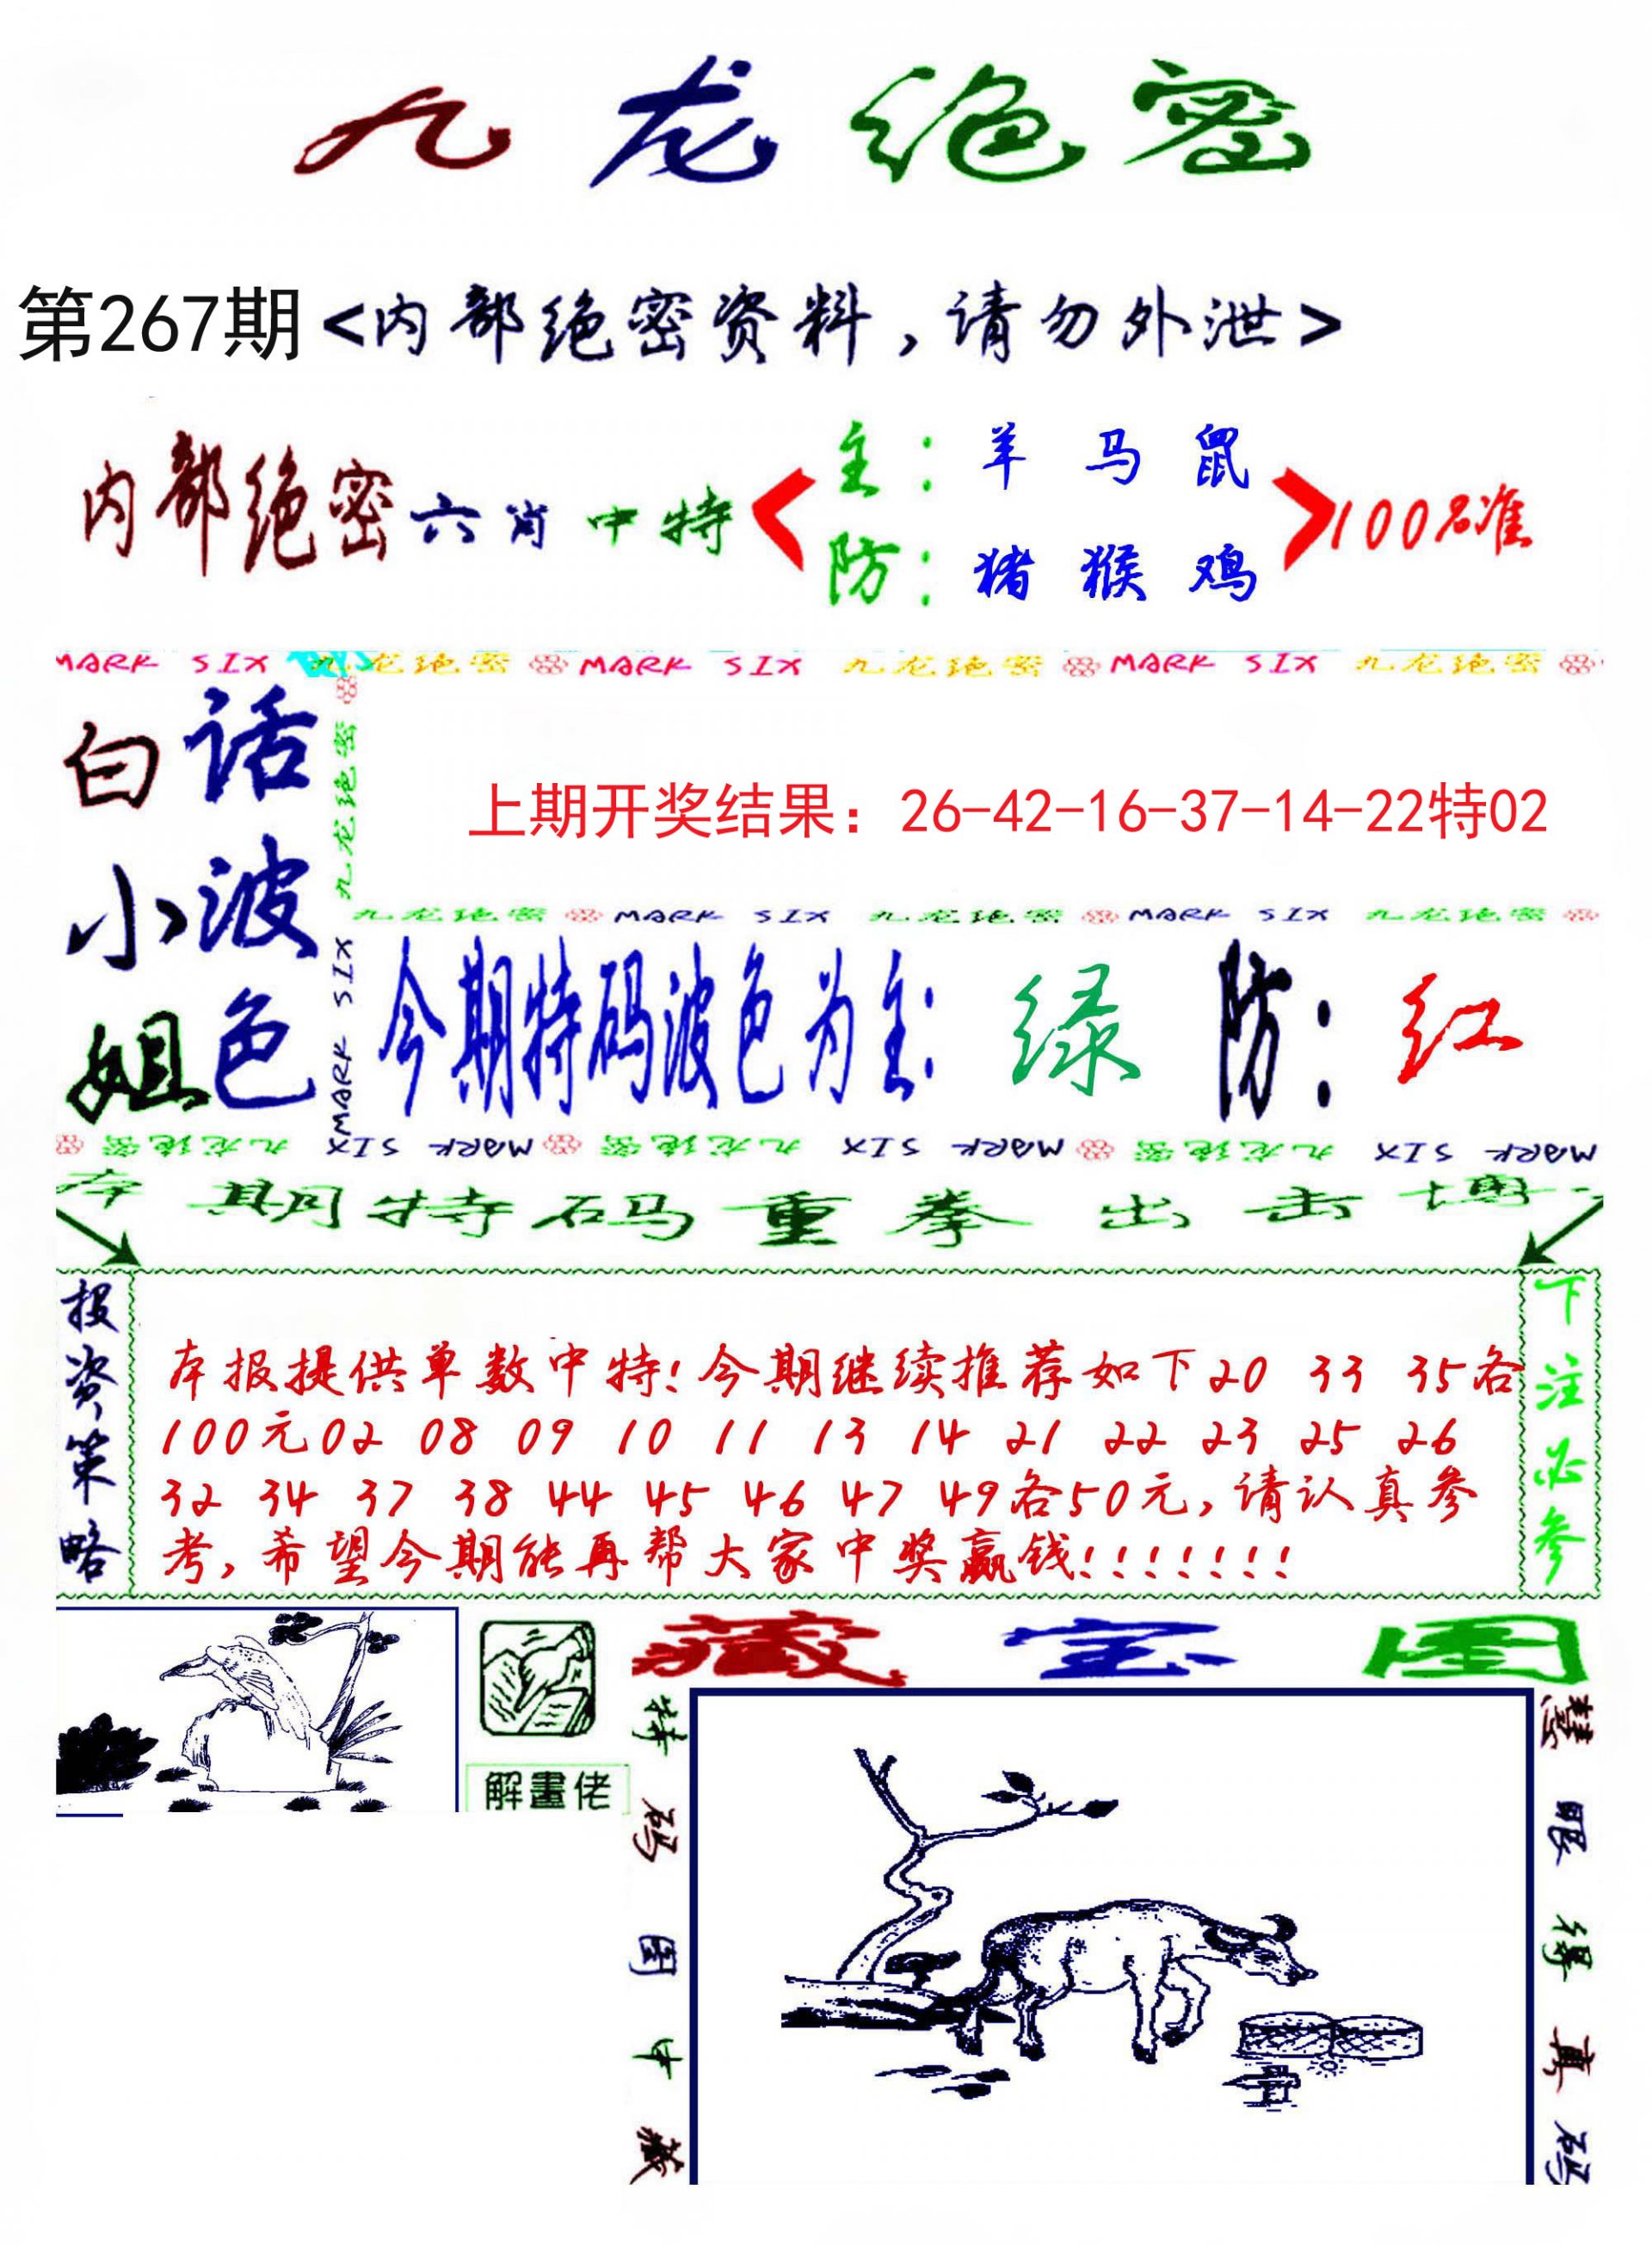 九龙绝密
第267期<内部绝密资料，请勿外泄>
内部绝密六肖中特<主：羊 马 鼠
防：猪 猴 鸡>100%准
MARK SIX 九龙绝密 MARK SIX 九龙绝密 MARK SIX 九龙绝密
白小姐
话波色
九龙绝密
MARK SIX
上期开奖结果：26-42-16-37-14-22特02
九龙绝密 MARK SIX 九龙绝密 MARK SIX 九龙绝密
今期特码波色为主：绿 防：红
MARK SIX 九龙绝密 MARK SIX 九龙绝密 MARK SIX 九龙绝密
本期特码重拳出击博
投资策略
本报提供单数中特！今期继续推荐如下20 33 35各
100元02 08 09 10 11 13 14 21 22 23 25 26
32 34 37 38 44 45 46 47 49各50元，请认真参
考，希望今期能再帮大家中奖赢钱！！！！！！！
下注必参
解畫佬
藏宝图
特码图中藏
慧眼得真码